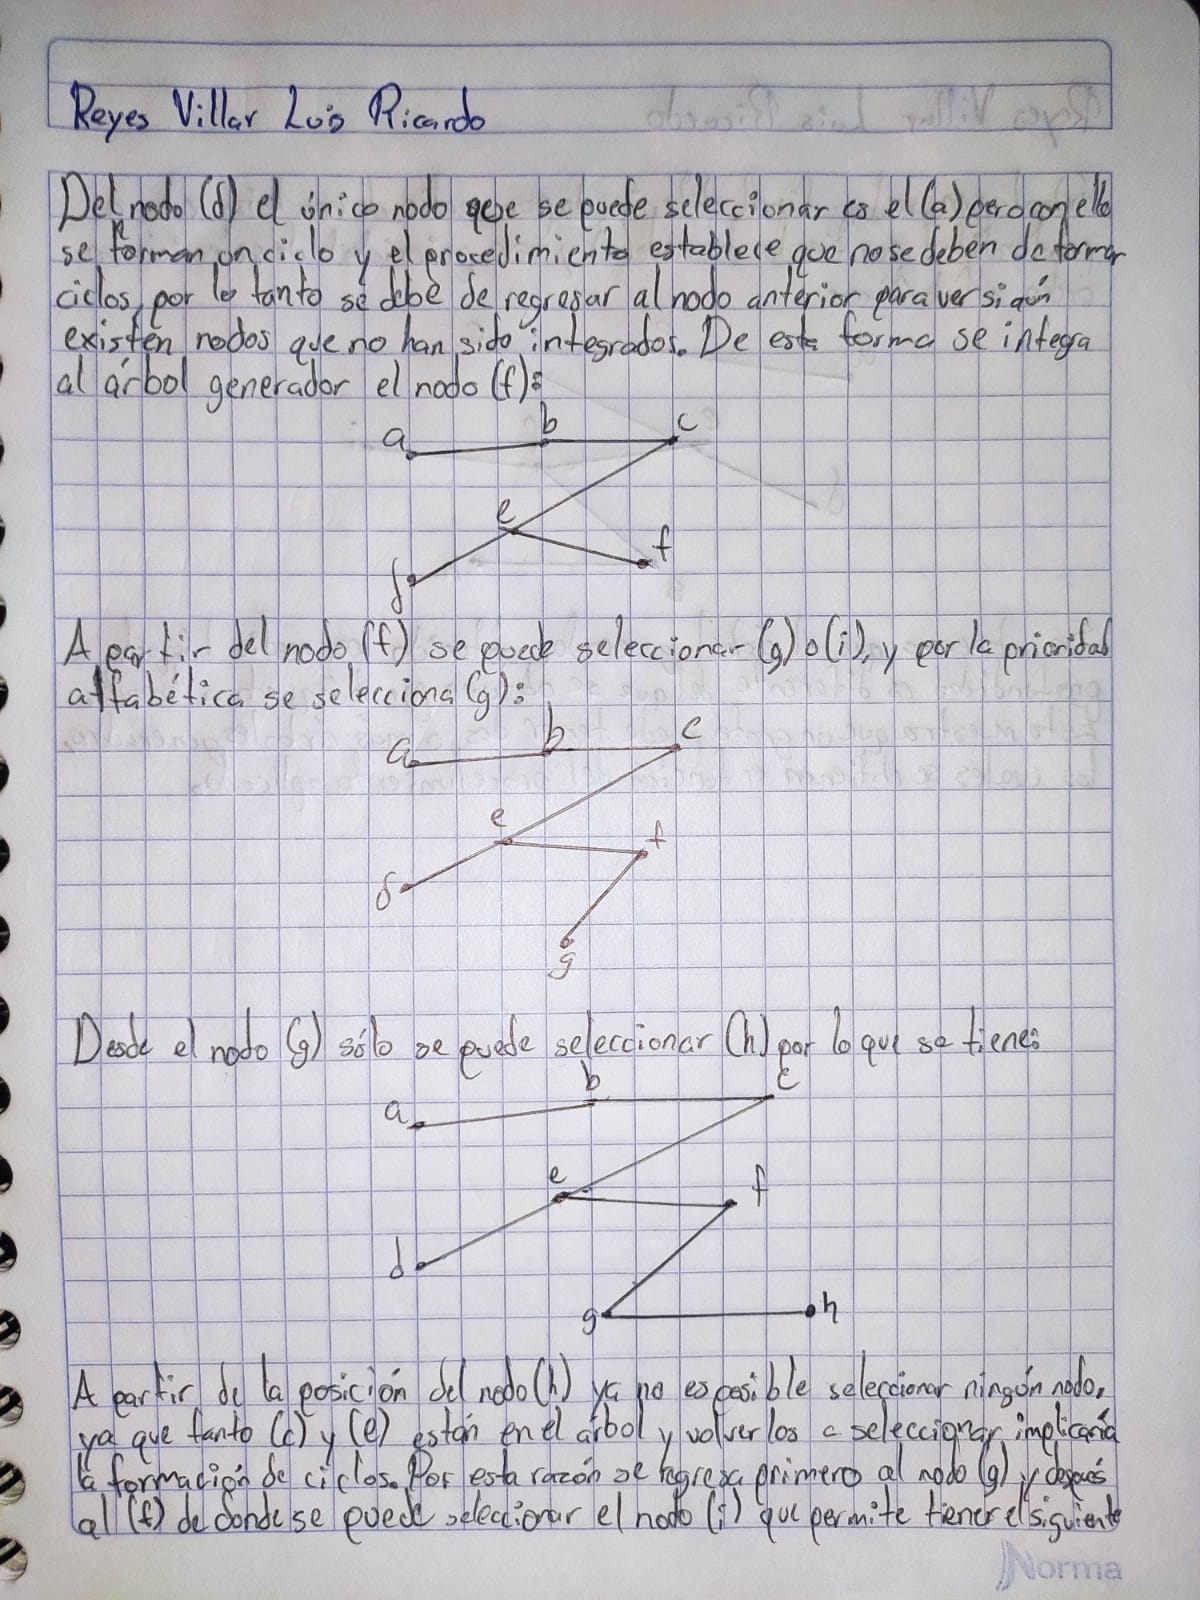 Reyes Villar Luis Ricardo
Del nodo (d) el único nodo que se puede seleccionar es el (a) pero con ello
se forman un ciclo y el procedimiento establece que no se deben de formar
ciclos, por lo tanto se debe de regresar al nodo anterior para ver si aún
existen nodos que no han sido integrados. De esta forma se integra
al árbol generador el nodo (f):
a b c
e f
d
A partir del nodo (f) se puede seleccionar (g) o (i), y por la prioridad
alfabética se selecciona (g):
a b c
e f
d
g
Desde el nodo (g) sólo se puede seleccionar (h) por lo que se tiene:
a b c
e f
d
g h
A partir de la posición del nodo (h) ya no es posible seleccionar ningún nodo,
ya que tanto (c) y (e) están en el árbol y volverlos a seleccionar implicaría
la formación de ciclos. Por esta razón se regresa primero al nodo (g) y después
al (f) de donde se puede seleccionar el nodo (i) que permite tiener el siguiente
Norma